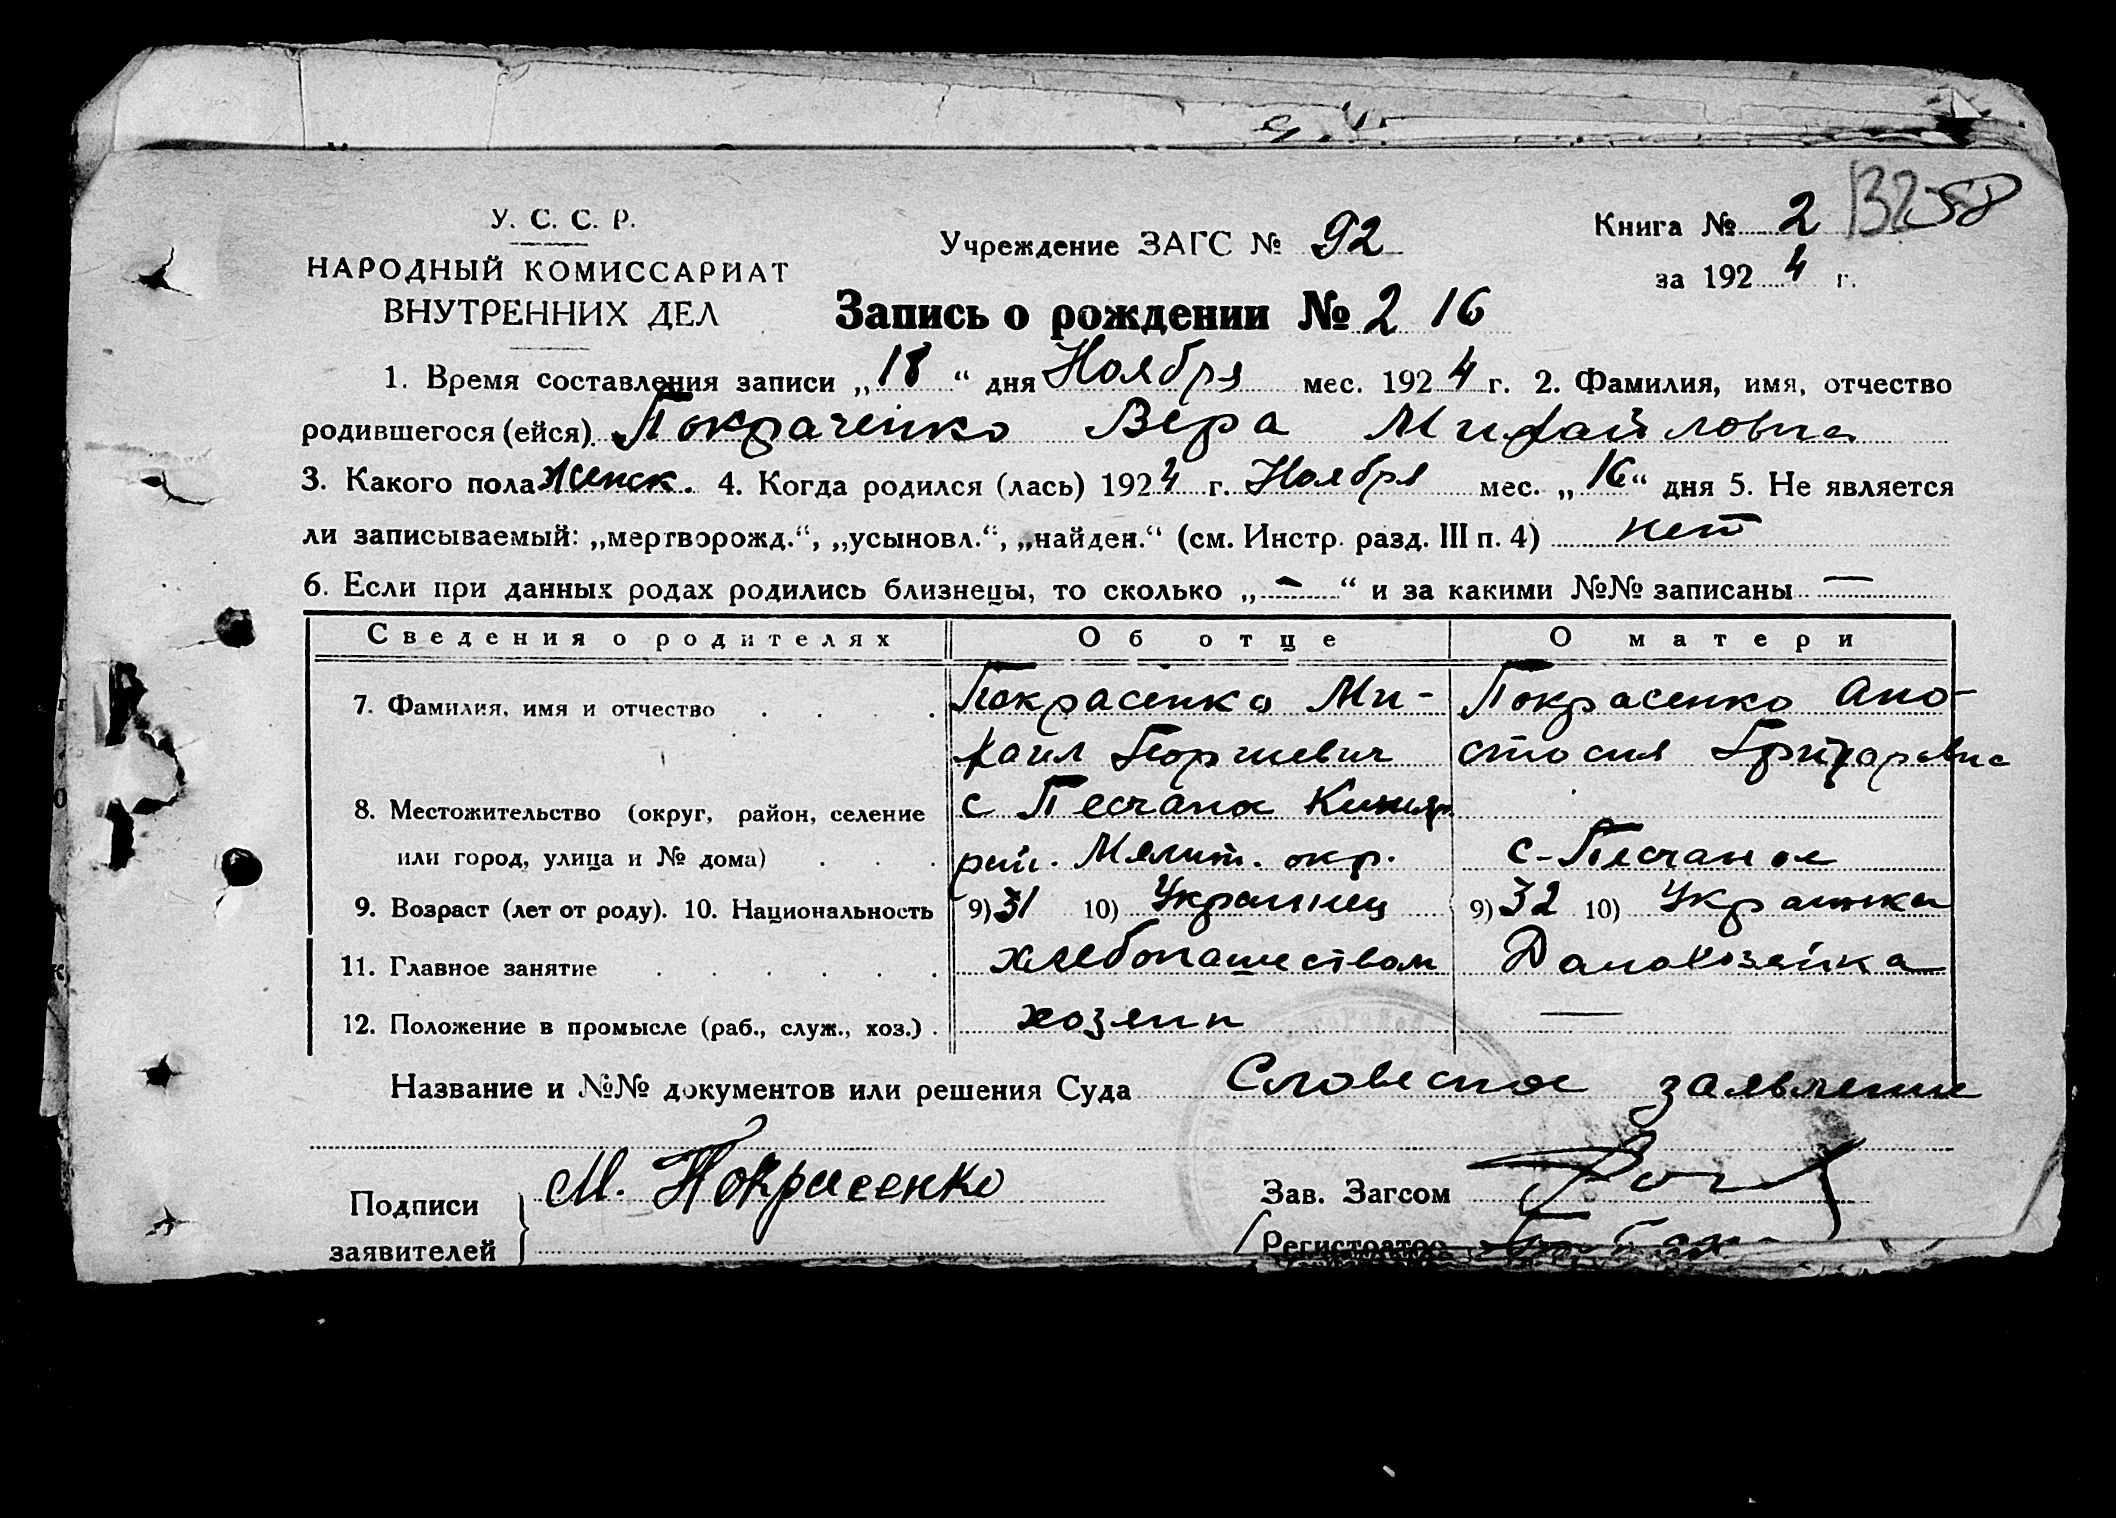 132 58
У. С. С. Р.
НАРОДНЫЙ КОМИССАРИАТ
ВНУТРЕННИХ ДЕЛ
Учреждение ЗАГС № 92
Книга № 2
за 1924 г.
Запись о рождении № 2 16
1. Время составления записи „18“ дня Ноября мес. 1924 г. 2. Фамилия, имя, отчество
родившегося (ейся) Покраченко Вера Михайловна
3. Какого пола женск. 4. Когда родился (лась) 1924 г. Ноября мес. „16“ дня 5. Не является
ли записываемый: „мертворожд.“, „усыновл.“, „найден.“ (см. Инстр. разд. III п. 4) нет
6. Если при данных родах родились близнецы, то сколько „—“ и за какими №№ записаны —
Сведения о родителях Об отце О матери
7. Фамилия, имя и отчество Покрасенко Ми- Покрасенко Ано-
хаил Георгиевич стосия Григоровна
с Песчаное
8. Местожительство (округ, район, селение
или город, улица и № дома) рай. Мелит. окр. с-Песчаное
9. Возраст (лет от роду). 10. Национальность 9) 31 10) Украинец 9) 32 10) Украинка
11. Главное занятие хлебопашеством Домохозяйка
12. Положение в промысле (раб., служ., хоз.) хозяин —
Название и №№ документов или решения Суда Словесное заявление
Подписи
заявителей
М. Покрасенко
Зав. Загсом
Регистратор